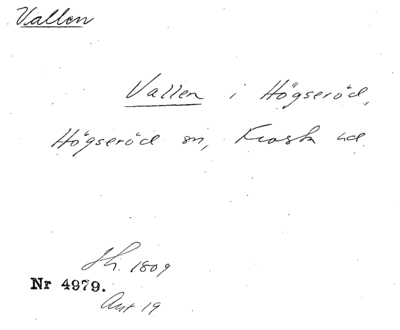 Vallen
Vallen i Högseröd,
Högseröd sn, Frosta hd
Sk. 1809
Nr 4979.
Ant 19